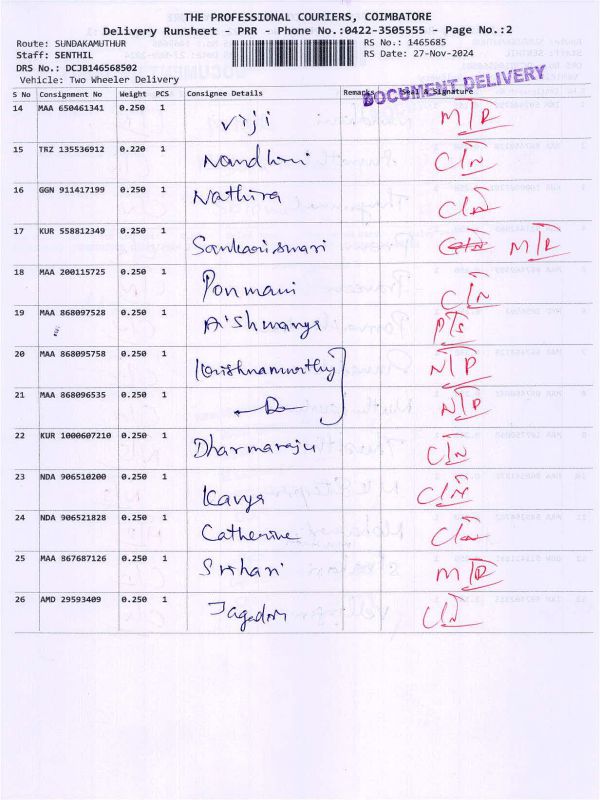 THE PROFESSIONAL COURIERS, COIMBATORE
Delivery Runsheet - PRR - Phone No.:0422-3505555 - Page No.:2
Route: SUNDAKAMUTHUR RS No.: 1465685
Staff: SENTHIL RS Date: 27-Nov-2024
DRS No.: DCJB146568502
Vehicle: Two Wheeler Delivery
DOCUMENT DELIVERY
S No Consignment No Weight PCS Consignee Details Remarks Seal & Signature
14 MAA 650461341 0.250 1 Viji M/R
15 TRZ 135536912 0.220 1 Nandhini C/N
16 GGN 911417199 0.250 1 Nathira
17 KUR 558812349 0.250 1 Sankariswari M/R
18 MAA 200115725 0.250 1 Ponmani C/N
19 MAA 868097528 0.250 1 Aishwarya
20 MAA 868095758 0.250 1 Krishnamurthy N/P
21 MAA 868096535 0.250 1 N/P
22 KUR 1000607210 0.250 1 Dharmaraju C/N
23 NDA 906510200 0.250 1 Kavya C/N
24 NDA 906521828 0.250 1 Catherine
25 MAA 867687126 0.250 1 Srihari M/R
26 AMD 29593409 0.250 1